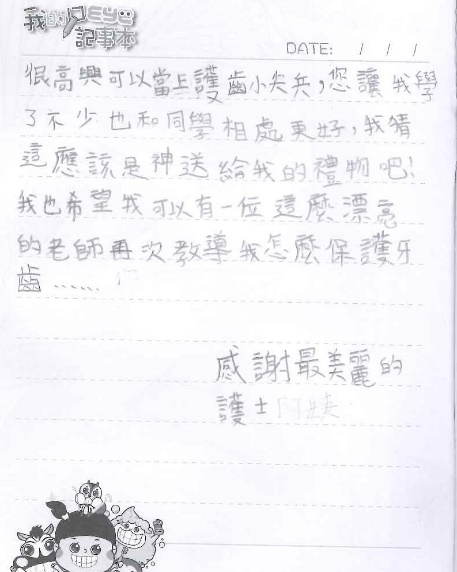 我的QEYE
記事本
DATE: / / /
很高興可以當上護齒小尖兵，您讓我學
了不少也和同學相處更好，我猜
這應該是神送給我的禮物吧！
我也希望我可以有一位這麼漂亮
的老師再次教導我怎麼保護牙
齒……
感謝最美麗的
護士阿